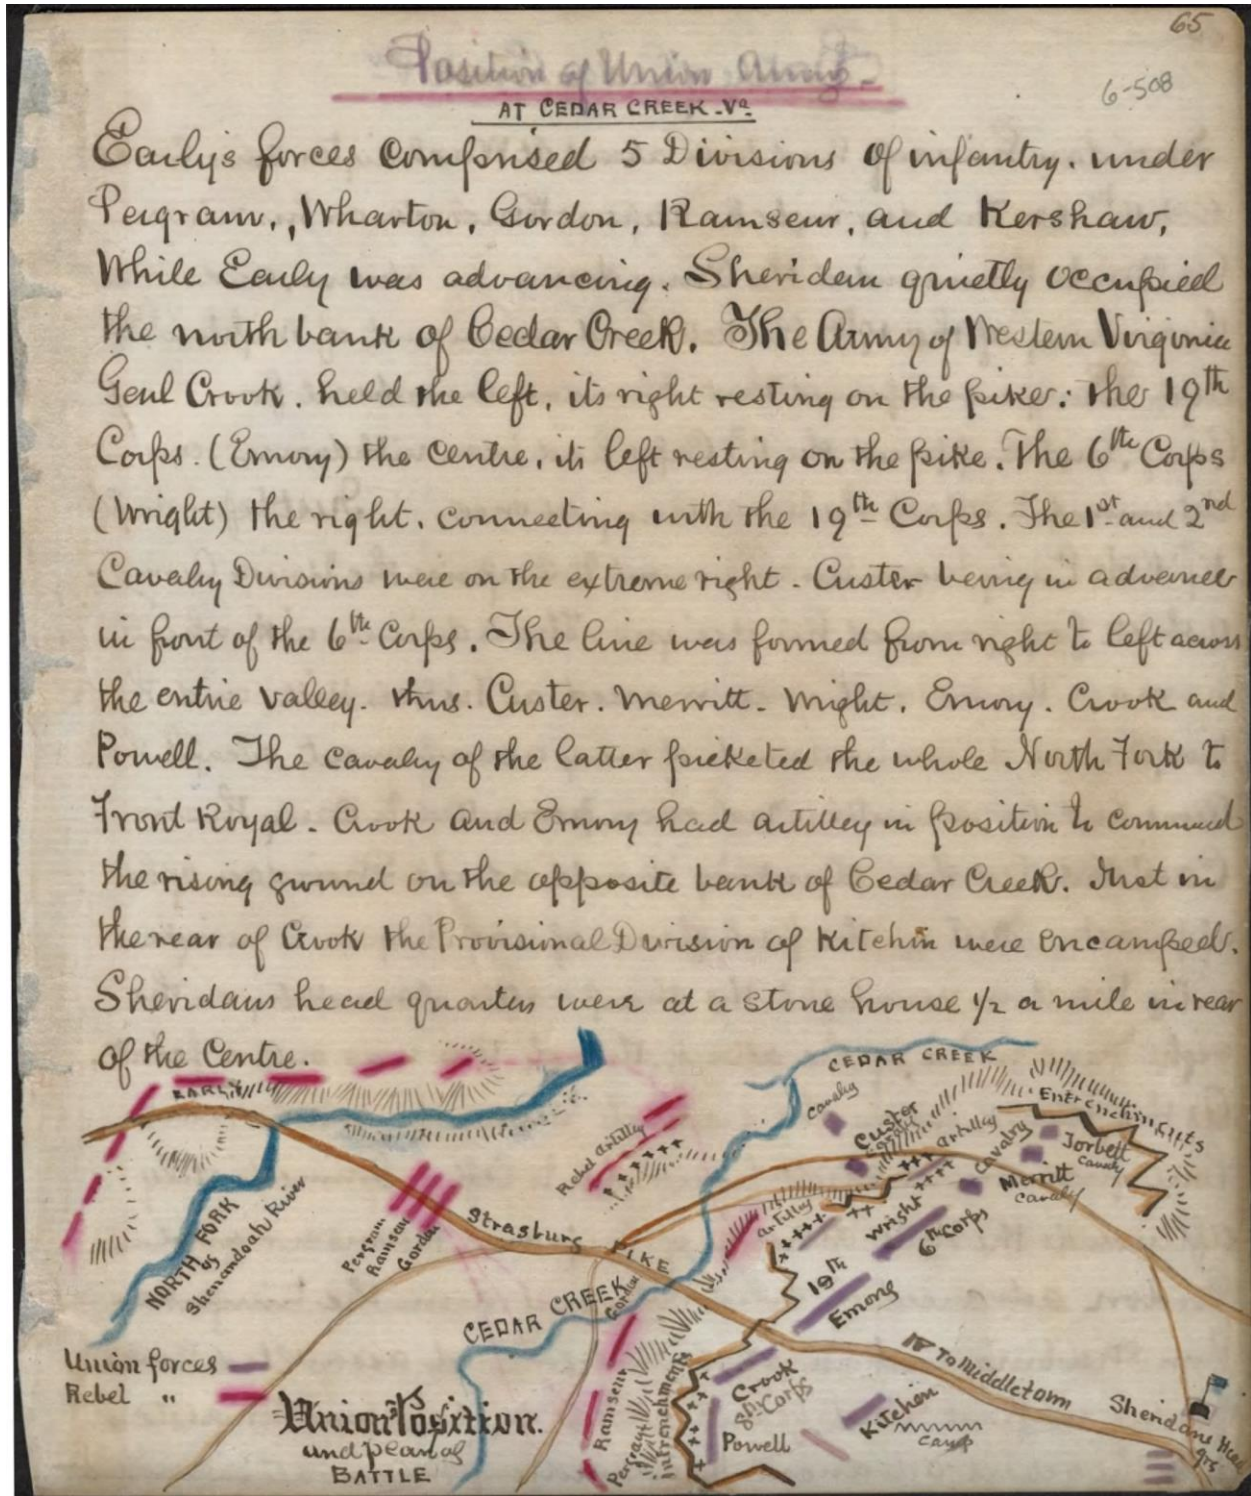 65
Position of Union Army.
6-508
AT CEDAR CREEK. Va
Early's forces comprised 5 Divisions of infantry. under
Pergram,, Wharton, Gordon, Ramseur, and Kershaw,
While Early was advancing. Sheridan quietly occupied
the north bank of Cedar Creek. The Army of Western Virginia
Genl Crook. held the left, its right resting on the pike: the 19th
Corps. (Emory) the centre, its left resting on the pike. The 6th Corps
(Wright) the right. connecting with the 19th Corps. The 1st and 2nd
Cavalry Divisions were on the extreme right. Custer being in advance
in front of the 6th Corps. The line was formed from right to left across
the entire valley. thus. Custer. Merritt. Wright. Emory. Crook and
Powell. The cavalry of the latter picketed the whole North Fork to
Front Royal. Crook and Emory had artilley in position to command
the rising ground on the opposite bank of Cedar Creek. Just in
the rear of Crook the Provisional Division of Kitchin were encamped.
Sheridans head quarters were at a stone house 1/2 a mile in rear
of the Centre.
CEDAR CREEK
EARLY
Entrenchments
Cavalry
Custer
Cavalry
Artilley
Cavalry
Torbett
Cavalry
Merritt
Cavalry
Rebel Artilley
Artilley
Wright
6th Corps
NORTH FORK
of
Shenandoah River
Pergram
Ramson
Gordon
Strasburg
PIKE
19th
Emory
CEDAR CREEK
Gordon
Union forces
Rebel "
Ramseur
Pergram
Intrenchments
Crook
8th Corps
Powell
Kitchen
Camp
To Middletown
Sheridans Head
qrs
Union Position.
and plan of
BATTLE